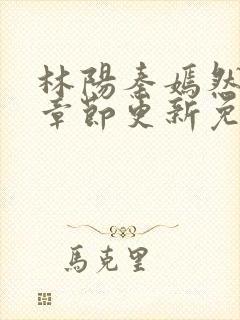 林陽秦嫣然
章節更新免
馬克里